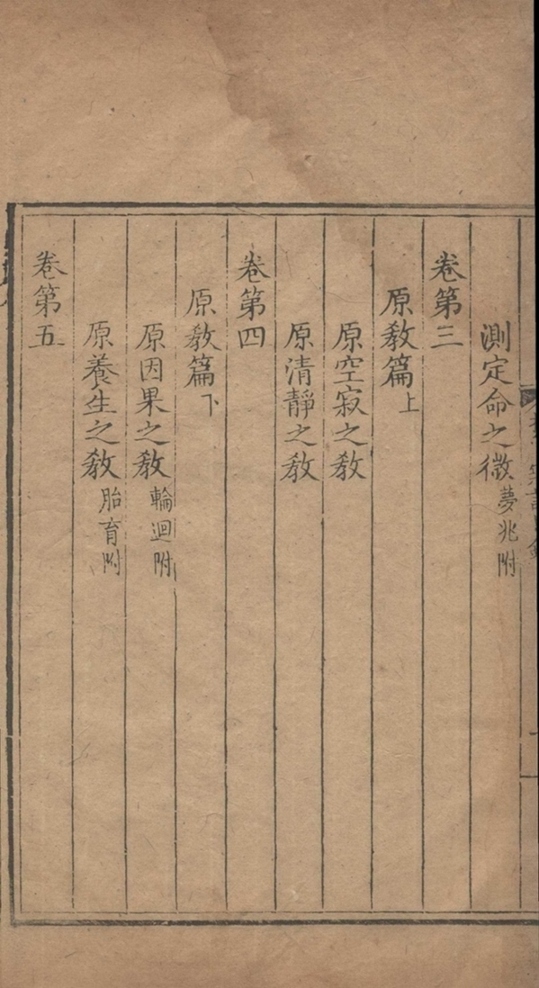 測定命之微夢兆附
卷第三
原教篇上
原空寂之教
原清靜之教
卷第四
原教篇下
原因果之教輪迴附
原養生之教胎育附
卷第五